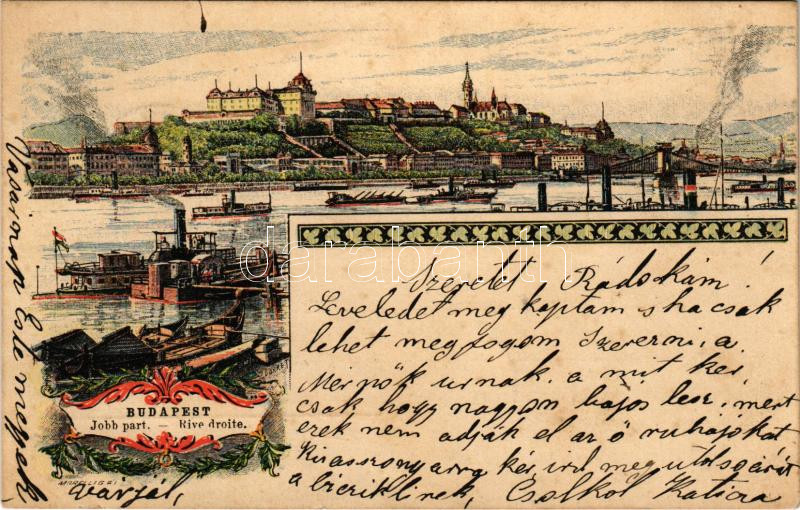 Szeretet Rádskám!
Leveledet meg kaptam s ha csak
lehet meg fogom Szerezni, a
Mérnök urnak, a mit kér
csak hogy nagyon bajos lesz, mert
ezek nem adják el az ő ruhájokat
Kisasszony arra kér ird meg
a
Csolkol Katicza
Vasárnap Este megyek
várjál,
BUDAPEST
Jobb part. — Rive droite.
darabanth